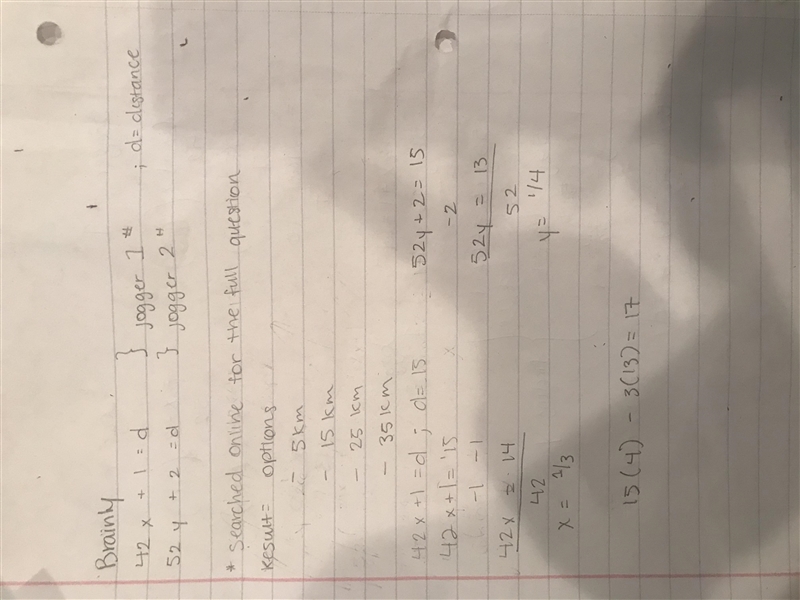 Brainly
42 x + 1 = d } jogger 1 # ; d = distance
52 y + 2 = d } jogger 2 #
* Searched online for the full question
Result = options
- 5km
- 15 km
- 25 km
- 35 km
42 x + 1 = d ; d = 15 52y + 2 = 15
42 x + 1 = 15 -2
-1 -1 52y = 13
42x = 14 52
42 y = 1/4
x = 1/3
15 (4) - 3 (13) = 17